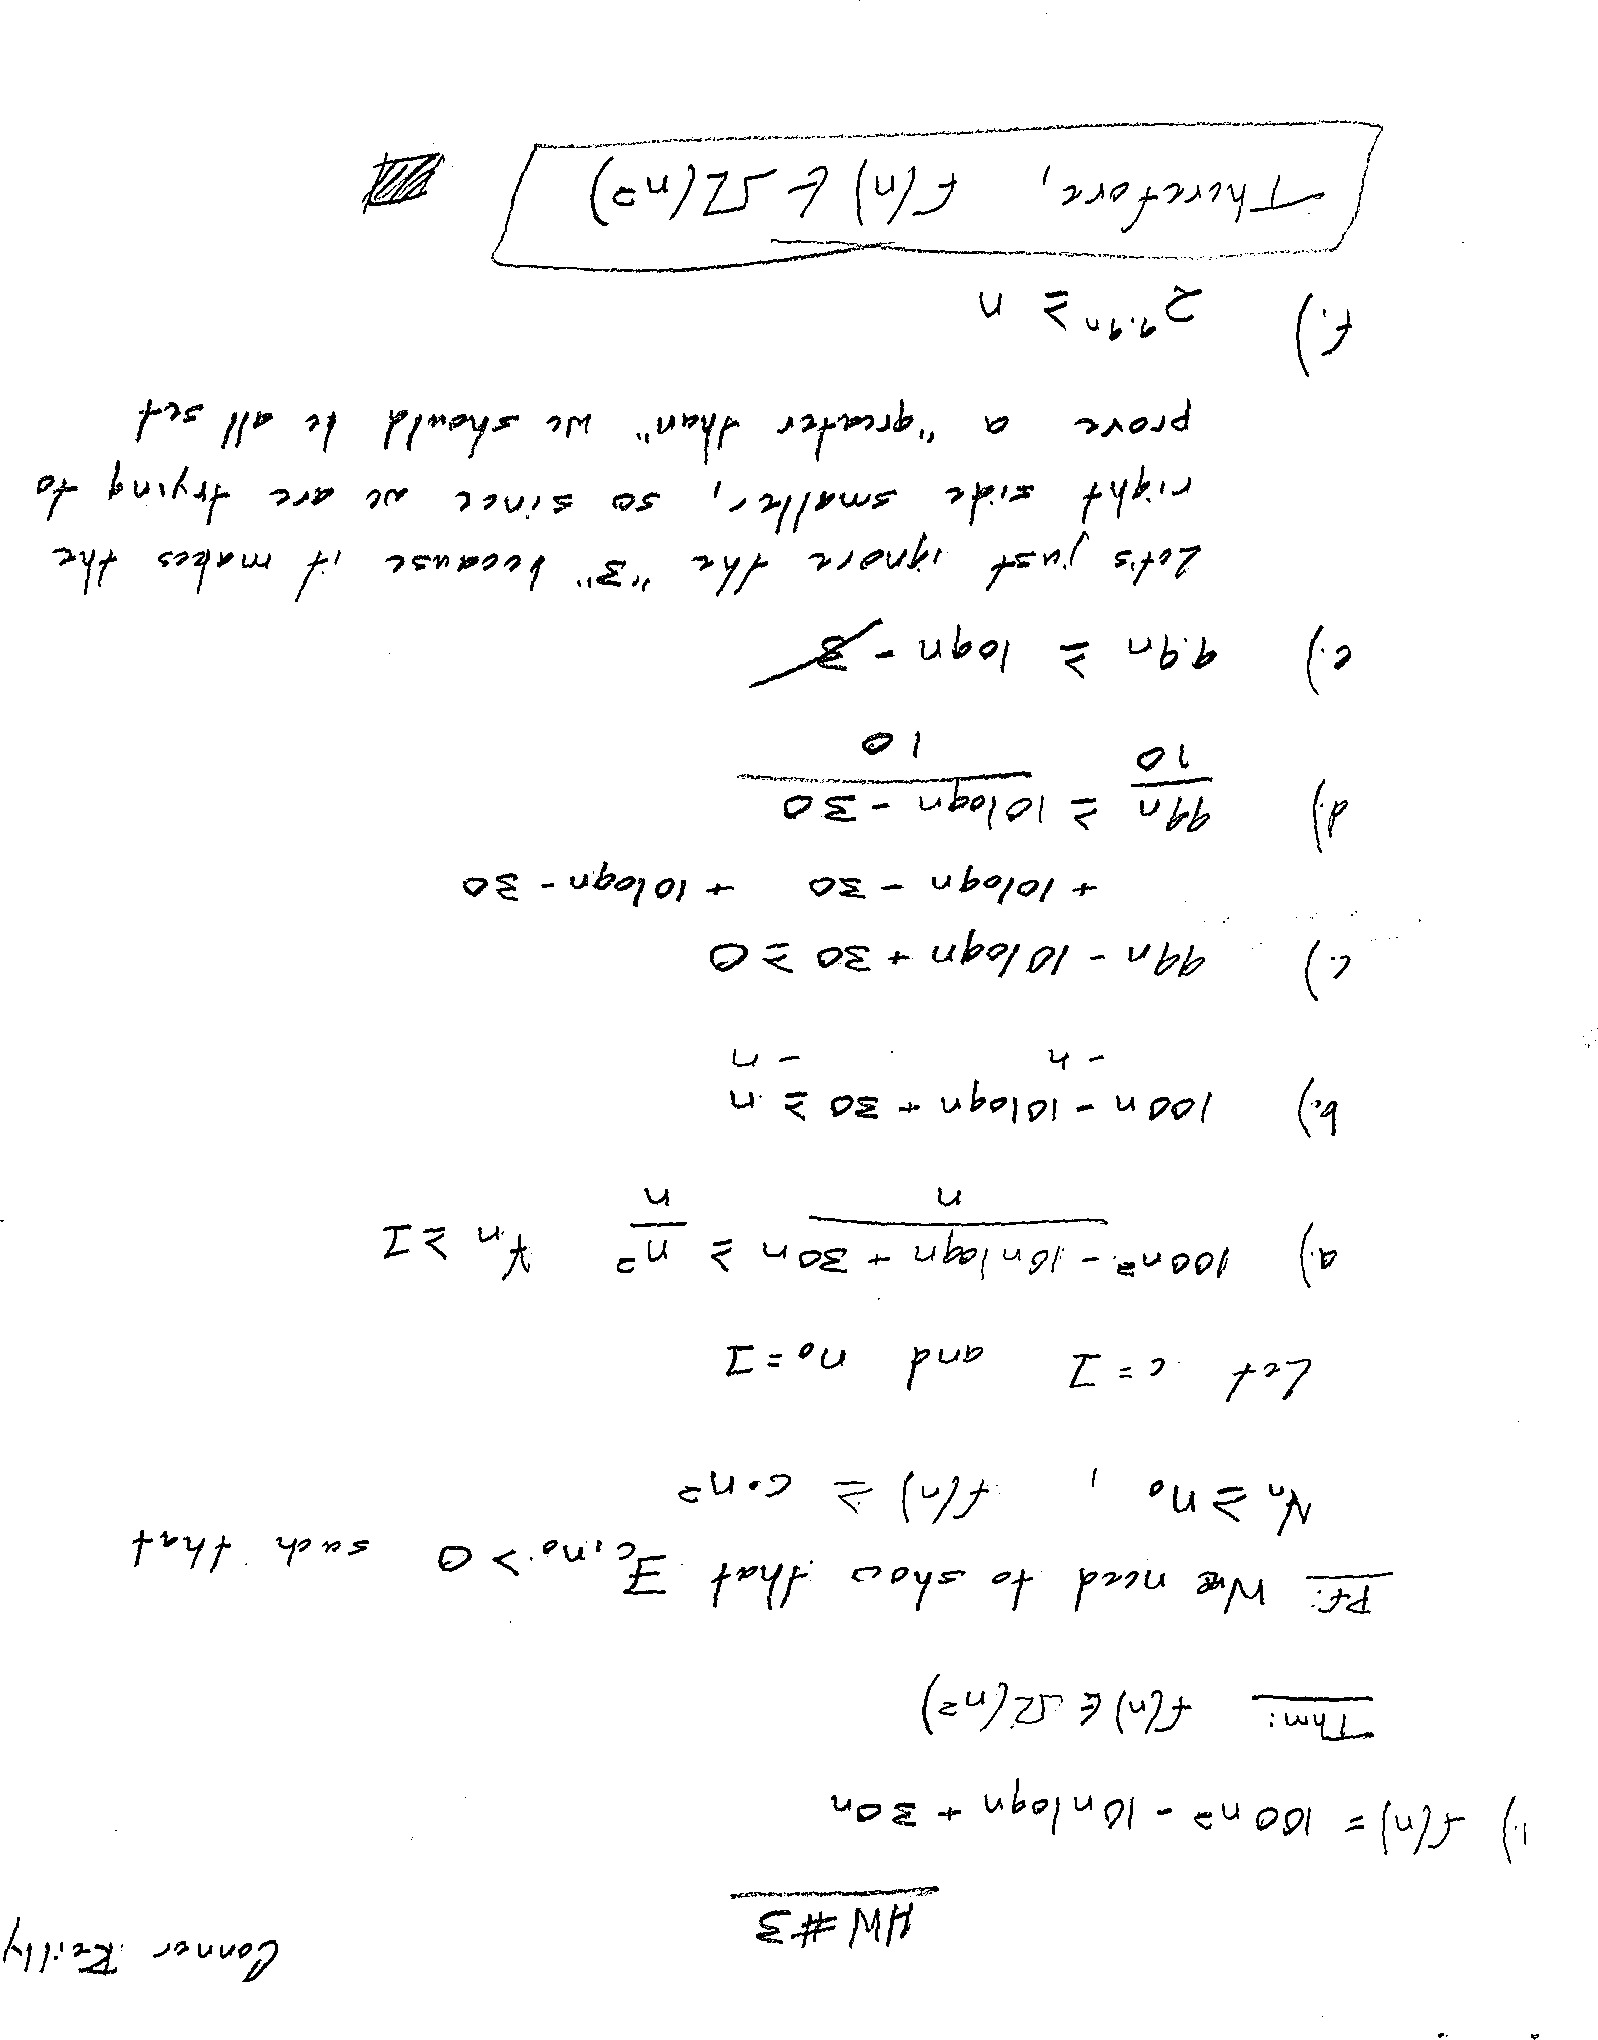 Conner Reilly
HW #3
1.) f(n) = 100n² - 10nlogn + 30n
Thm: f(n) ∈ Ω(n²)
Pf: We need to show that ∃c,n₀ > 0 such that
∀n ≥ n₀ , f(n) ≥ c·n²
Let c = 1 and n₀ = 1
a.) 100n² - 10nlogn + 30n ≥ n² ∀n ≥ 1
n n
b.) 100n - 10logn + 30 ≥ n
- n - n
c.) 99n - 10logn + 30 ≥ 0
+ 10logn - 30 + 10logn - 30
d.) 99n ≥ 10logn - 30
10 10
e.) 9.9n ≥ logn - 3
Let's just ignore the "3" because it makes the
right side smaller, so since we are trying to
prove a "greater than" we should be all set
f.) 2^9.9n ≥ n
Therefore, f(n) ∈ Ω(n²)